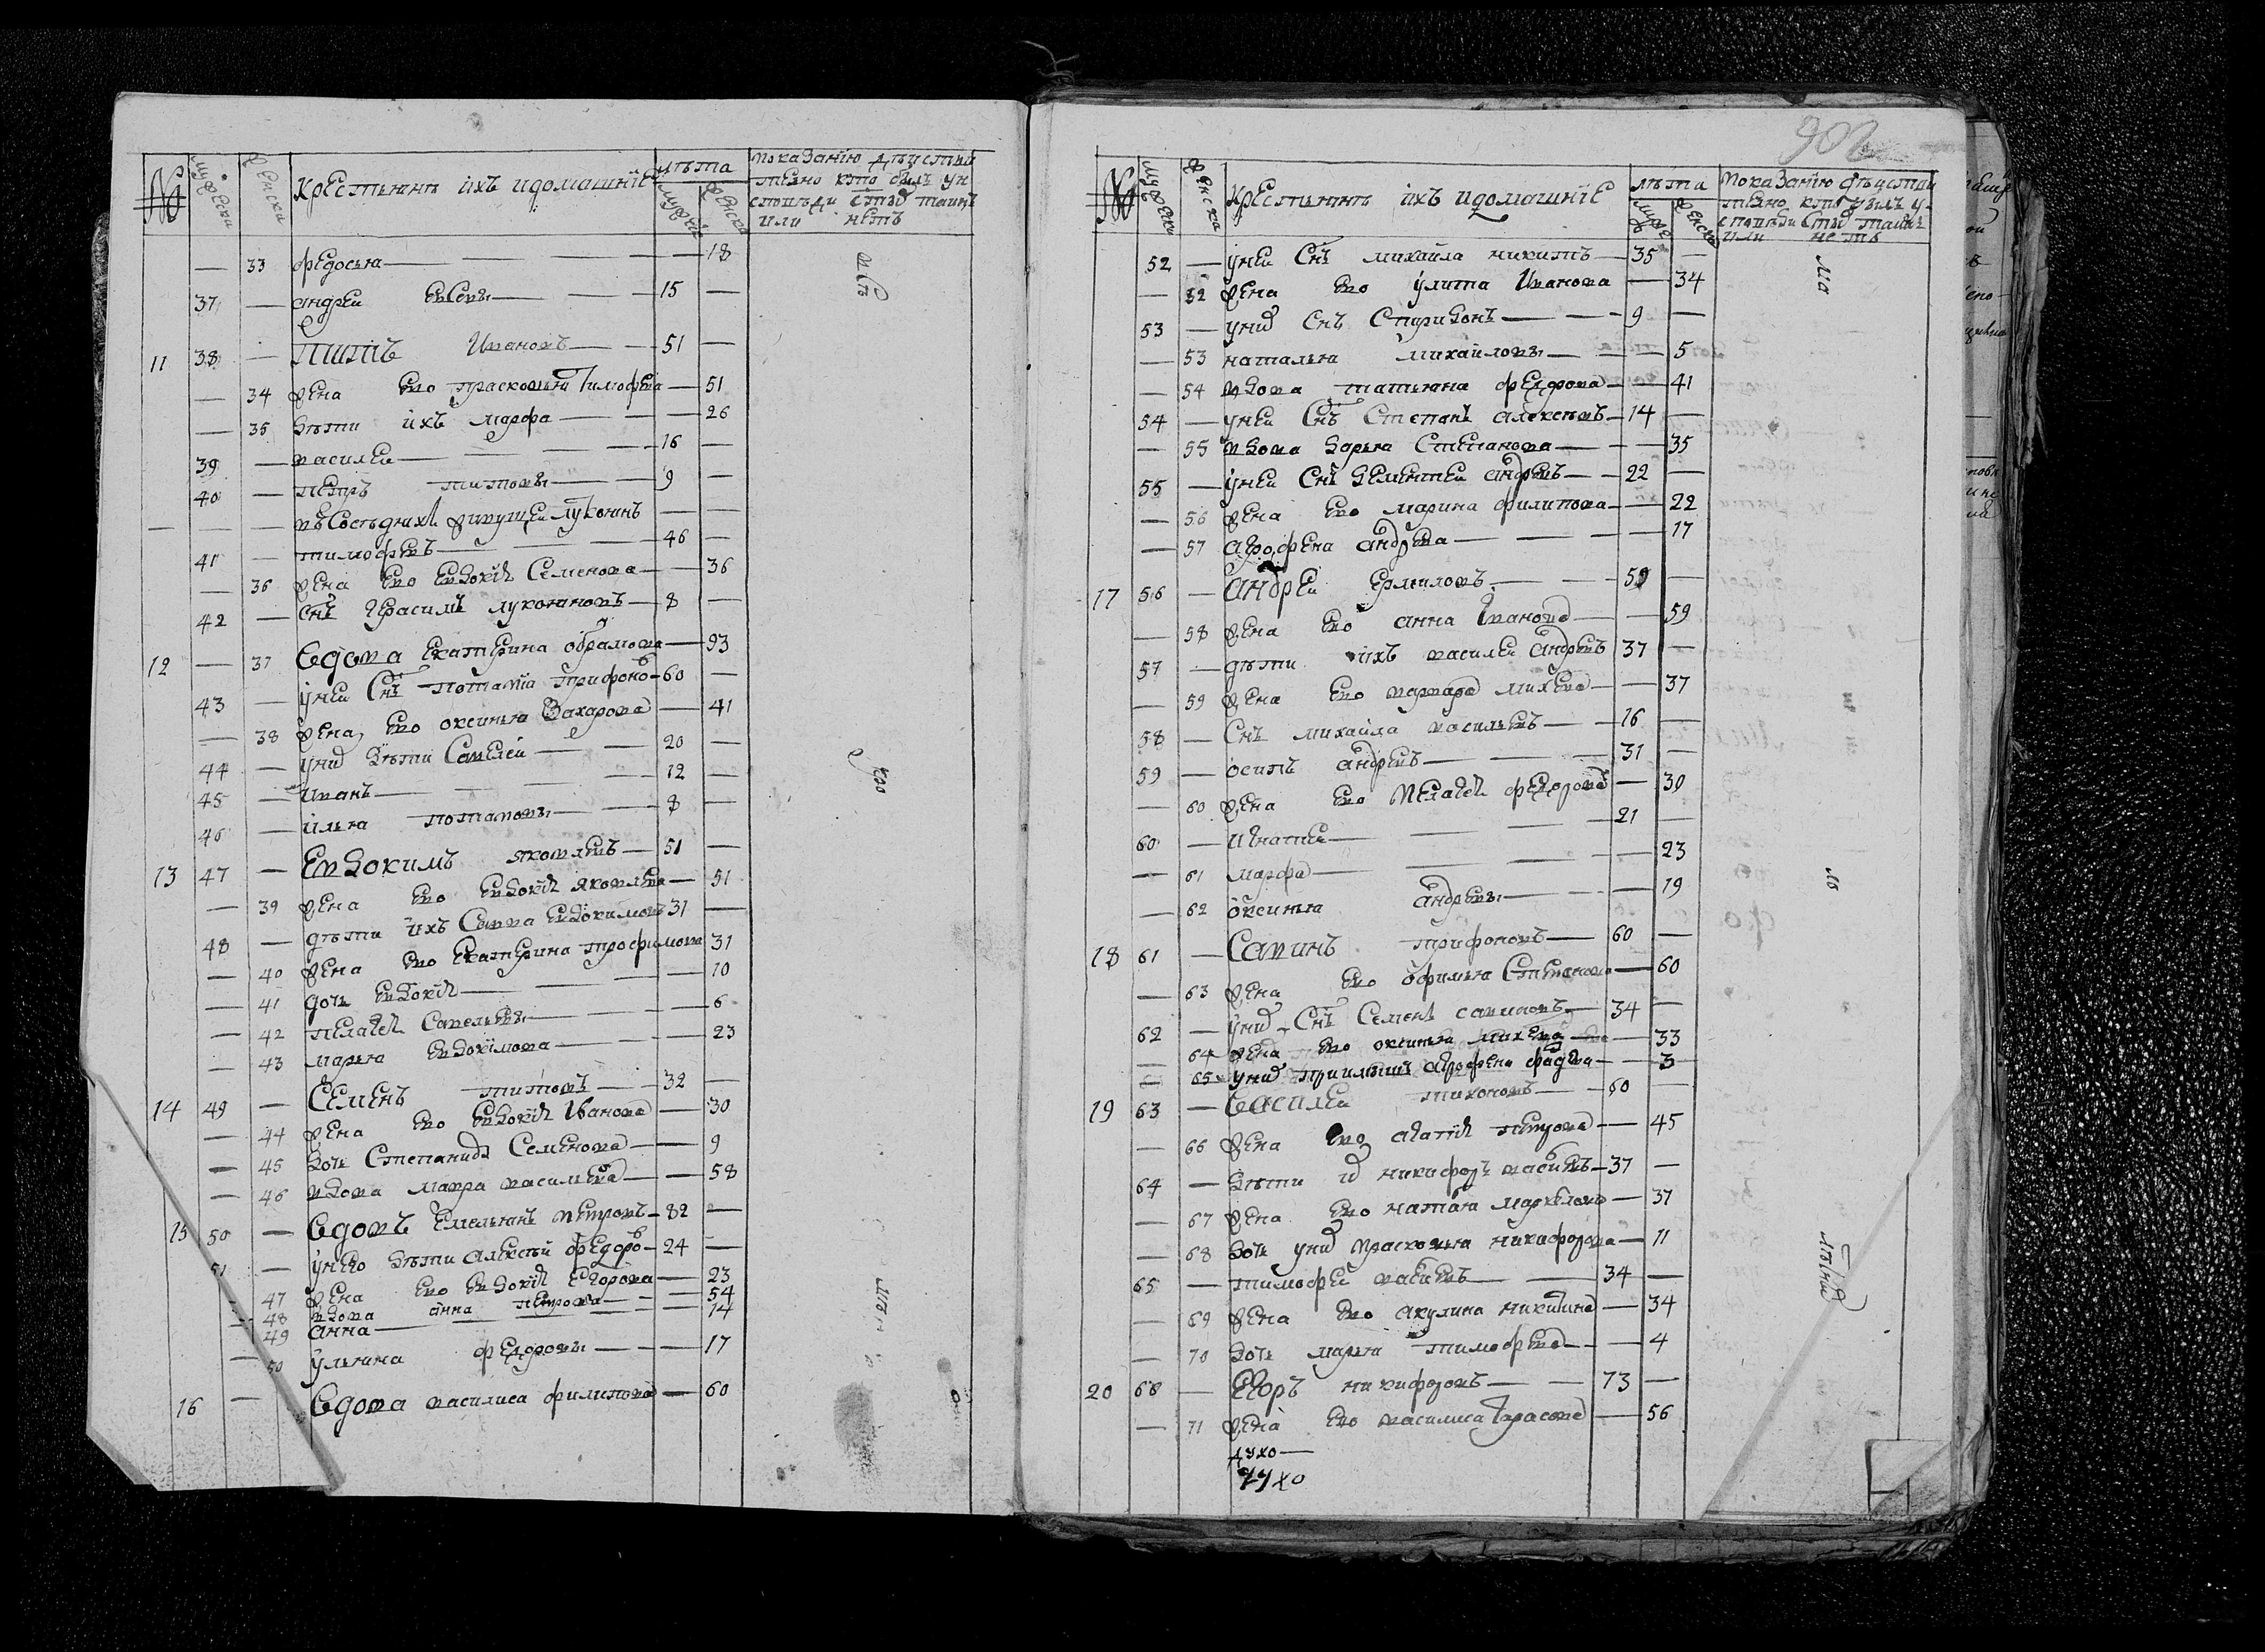 № мужески женски крестьяня ихъ идомашнїе
лѣта мужскїе женски
показанїю дѣистви
телно кто былъ уи
споведи стыхъ таинъ
или нетъ
— 33 федосья — — 18
37 — андреи евсевы — 15 —
11 38 — титъ Ивановъ — 51 —
— 34 жена ево прасковья Тимофева — 51
— 35 дѣти ихъ марфа — — 26
39 — василеи — 16 —
40 — петръ титовы — 9 —
— — — въ Соседяхъ живущеи луконинъ — —
41 — тимофевъ — 46 —
— 36 жена ево евдокїя Семенова — 36
42 — снъ герасимъ луконяновъ — 8 —
12 — 37 Вдова екатерина обрамова — 93
43 — унеи Снъ потапїа трифоно — 60 —
— 38 жена ево оксинья Захарова — 41
44 — унихъ дѣти Савелеи — 20 —
45 — Иванъ — 12 —
46 — илья потаповы — 8 —
13 47 — Евдокимъ яковлевъ — 51 —
— 39 жена ево евдокїя яковлева — 51
48 — дѣти ихъ Савва евдокимовъ 31 —
— 40 жена ево екатерина трофимова 31
— 41 дочь евдокїя — — 10
— 42 пелагея Савельевы — — 6
— 43 марья евдокїмова — — 23
14 49 — Семенъ титовъ — 32 —
— 44 жена ево евдокїя Иванова — 30
— 45 дочь Степанида Семенова — 9
— 46 вдова мавра васильева — 58
15 50 — Вдовъ емельянъ петровъ — 82 —
51 — унево дѣти алексѣи федоро — 24 —
47 жена ево евдокїя егорова — 23
— 48 вдова анна петрова — — 54
49 анна — — 14
— 50 ульяна федоровы — — 17
16 — Вдова василиса филипова — 60
№ мужески женска крестьяня ихъ идомашнїе
лѣта мужские женски
показанїю дѣистви
телно кто былъ у
споведи стыхъ таинъ
или нетъ
52 — унеи Снъ михаила никитъ — 35 —
— 52 жена ево улита Иванова — 34
53 — унихъ снъ Спиридонъ — 9 —
— 53 наталья михаиловы — — 5
— 54 вдова татьяна федрова — 41
54 — унеи Снъ Степанъ алексѣевъ — 14 —
— 55 вдова дарья Степанова — — 35
55 — унеи Снъ дементеи андревъ — 22 —
— 56 жена ево марина филипова — 22
— 57 аграфена андрева — — 17
17 56 — андреи ермиловъ — 59 —
— 58 жена ево анна Иванова — 59
57 — дѣти ихъ василеи андревъ 37 —
— 59 жена ево варвара михева — 37
58 — Снъ михаила васильевъ — 16 —
59 — осипъ андревъ — 31 —
— 60 жена ево пелагея федорова — 30
60 — игнатеи — 21 —
— 61 марфа — — 23
— 62 оксинья андревы — — 19
18 61 — Савинъ трифоновъ — 60 —
— 63 жена ево офимья Степанова — 60
62 — унихъ Снъ Семенъ савиновъ — 34 —
— 64 жена ево оксинья михева — 33
— 65 унихъ приимышъ аграфена фадева — 3
19 63 — Василеи тихоновъ — 60 —
— 66 жена ево агапїя петрова — 45
64 — дѣти ихъ никифоръ васиевъ — 37 —
— 67 жена ево натаья маркелова — 37
— 68 дочь унихъ прасковья никифорова — 11
65 — тимофеи васиевъ — 34 —
— 69 жена ево акулина никитина — 34
— 70 дочь марья тимофева — 4
20 66 — Егоръ никифоровъ — 73 —
— 71 жена ево василиса Тарасова — 56
духо —